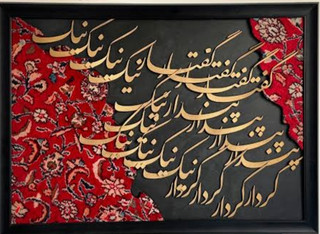 گفتار گفتار گفتار گفتار نیک نیک نیک نیک
پندار پندار پندار پندار نیک نیک نیک
کردار کردار کردار کردار نیک نیک